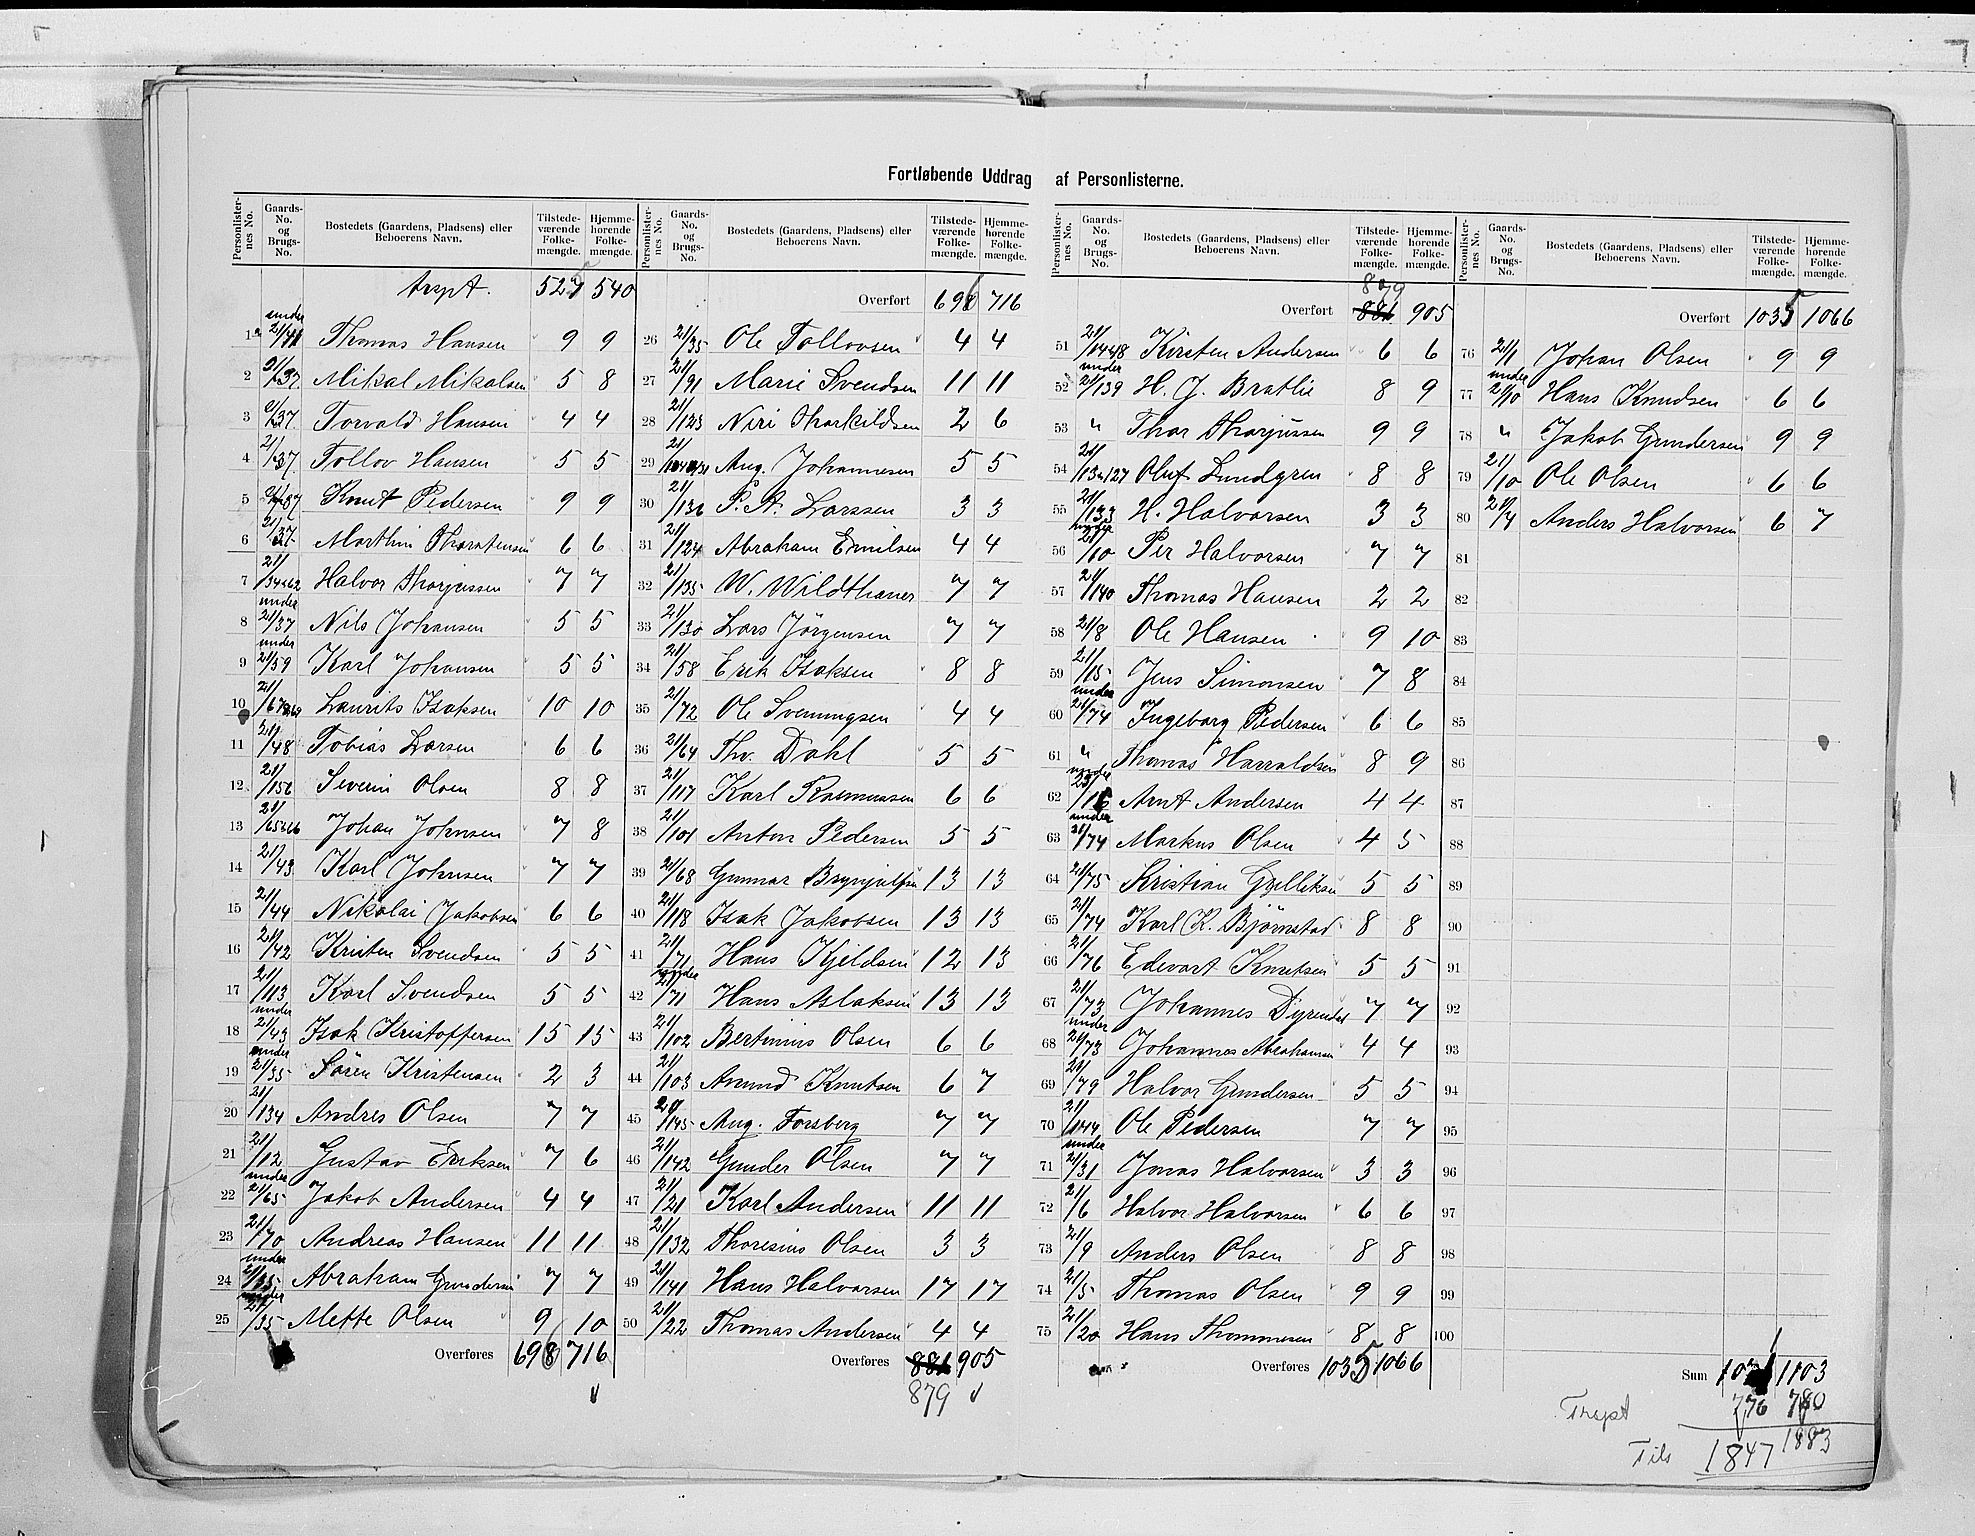 Fortløbende Uddrag af Personlisterne.
Personlister-nes No. Gaards-No. og Brugs-No. Bostedets (Gaardens, Pladsens) eller Beboerens Navn. Tilstede-værende Folke-mængde. Hjemme-hørende Folke-mængde.
trspt. 525 540
1 under 21/ Thomas Hansen 9 9
2 21/37 Mikal Mikalsen 5 8
3 21/37 Torvald Hansen 4 4
4 21/37 Tollov Hansen 5 5
5 21/37 Knut Pedersen 9 9
6 21/37 Marthin Thorstensen 6 6
7 21/ Halvor Thorjussen 7 7
8 under 21/37 Nils Johansen 5 5
9 under 21/59 Karl Johansen 5 5
10 21/ Laurits Isaksen 10 10
11 21/48 Tobias Larsen 6 6
12 21/156 Severin Olsen 8 8
13 21/ Johan Johnsen 7 8
14 21/43 Karl Johnsen 7 7
15 21/44 Nikolai Jakobsen 6 6
16 21/42 Kristen Svendsen 5 5
17 21/113 Karl Svendsen 5 5
18 under 21/43 Isak Kristoffersen 15 15
19 under 21/35 Søren Kristensen 2 3
20 21/134 Andres Olsen 7 7
21 21/12 Gustav Eriksen 7 6
22 under 21/65 Jakob Andersen 4 4
23 21/70 Andreas Hansen 11 11
24 under 21/35 Abraham Gundersen 7 7
25 under 21/35 Mette Olsen 9 10
Overføres 696 716
Personlister-nes No. Gaards-No. og Brugs-No. Bostedets (Gaardens, Pladsens) eller Beboerens Navn. Tilstede-værende Folke-mængde. Hjemme-hørende Folke-mængde.
Overført 696 716
26 21/35 Ole Tollovsen 4 4
27 21/91 Marie Svendsen 11 11
28 21/123 Niri Tharkildsen 2 6
29 21/ Aug. Johannesen 5 5
30 21/136 P. A. Larssen 3 3
31 21/124 Abraham Emilsen 4 4
32 21/135 W. Wildthaner 7 7
33 21/130 Lars Jörgensen 7 7
34 21/58 Erik Isaksen 8 8
35 21/72 Ole Svenningsen 4 4
36 21/64 Thv. Dahl 5 5
37 21/117 Karl Rasmussen 6 6
38 21/101 Anton Pedersen 5 5
39 21/68 Gunnar Brynjulfsen 13 13
40 21/118 Isak Jakobsen 13 13
41 21/71 Hans Kjeldsen 12 13
42 under 21/71 Hans Aslaksen 13 13
43 21/102 Bertinius Olsen 6 6
44 21/103 Amund Knutsen 6 7
45 21/145 Aug. Forsberg 7 7
46 21/142 Gunder Olsen 7 7
47 21/21 Karl Andersen 11 11
48 21/132 Thoresius Olsen 3 3
49 21/141 Hans Halvorsen 17 17
50 21/22 Thomas Andersen 4 4
Overføres 881 905
879
Personlister-nes No. Gaards-No. og Brugs-No. Bostedets (Gaardens, Pladsens) eller Beboerens Navn. Tilstede-værende Folke-mængde. Hjemme-hørende Folke-mængde.
879
Overført 881 905
51 21/ Kirsten Andersen 6 6
52 under 21/139 H. J. Bratlie 8 9
53 " Thor Thorjussen 9 9
54 21/ Oluf Lundgren 8 8
55 21/133 H. Halvorsen 3 3
56 under 21/10 Per Halvorsen 7 7
57 21/140 Thomas Hansen 2 2
58 21/8 Ole Hansen 9 10
59 21/15 Jens Simonsen 7 8
60 under 21/74 Ingeborg Pedersen 6 6
61 " Thomas Harraldsen 8 9
62 under 21/16 Arnt Andersen 4 4
63 under 21/74 Markus Olsen 4 5
64 21/75 Kristian Gulliksen 5 5
65 21/74 Karl K. Björnstad 8 8
66 21/76 Edevart Knutsen 5 5
67 21/73 Johannes Dyrendal 7 7
68 under 21/73 Johannes Abrahamsen 4 4
69 21/79 Halvor Gundersen 5 5
70 21/144 Ole Pedersen 7 7
71 under 21/31 Jonas Halvorsen 3 3
72 21/6 Halvor Halvorsen 6 6
73 21/9 Anders Olsen 8 8
74 21/5 Thomas Olsen 9 9
75 21/20 Hans Thommesen 8 8
Overføres 1035 1066
Personlister-nes No. Gaards-No. og Brugs-No. Bostedets (Gaardens, Pladsens) eller Beboerens Navn. Tilstede-værende Folke-mængde. Hjemme-hørende Folke-mængde.
Overført 1035 1066
76 21/1 Johan Olsen 9 9
77 under 21/10 Hans Knudsen 6 6
78 " Jakob Gundersen 9 9
79 21/10 Ole Olsen 6 6
80 21/4 Anders Halvorsen 6 7
81
82
83
84
85
86
87
88
89
90
91
92
93
94
95
96
97
98
99
100
Sum 1071 1103
Trspt 776 780
Tils 1847 1883